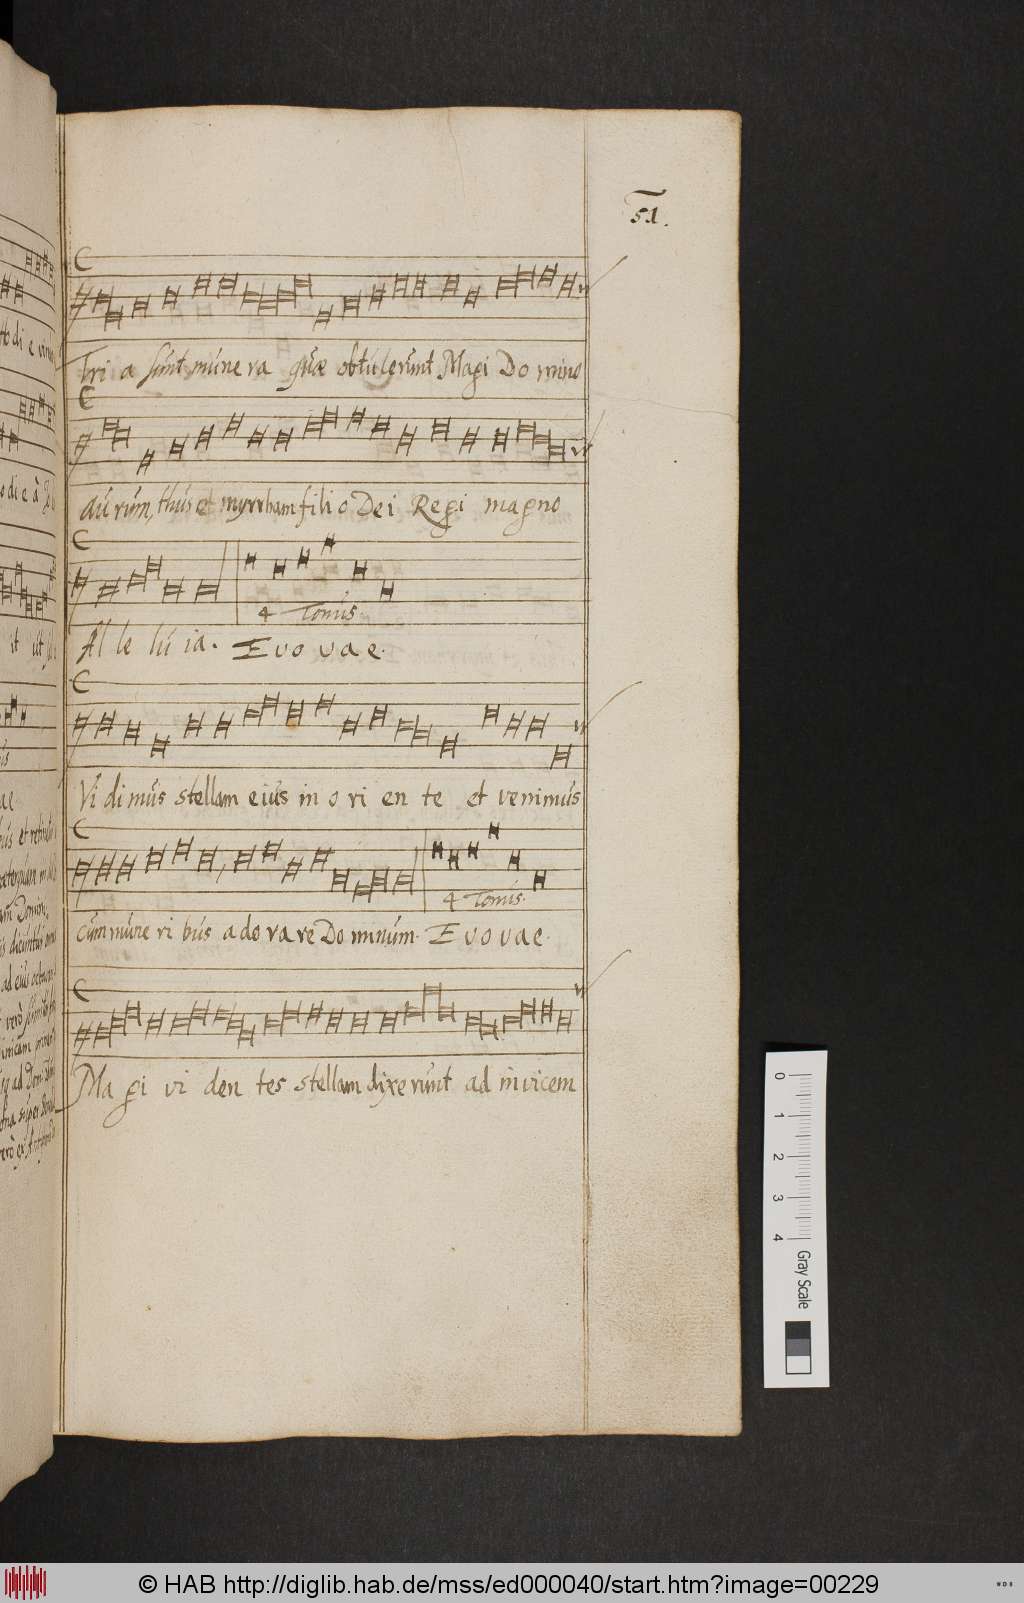 51.
Tri a sunt mune ra quæ obtulerunt Magi Do mino
aurum, thus et myrrham filio Dei Regi magno
4 Tonus.
Al le lu ia. Evovae.
Vidimus stellam eius in o ri en te et venimus
4 Tonus.
cum mune ri bus adorare Dominum. Evovae.
Ma gi vi den tes stellam dixerunt ad invicem
0 1 2 3 4
Gray Scale
© HAB http://diglib.hab.de/mss/ed000040/start.htm?image=00229